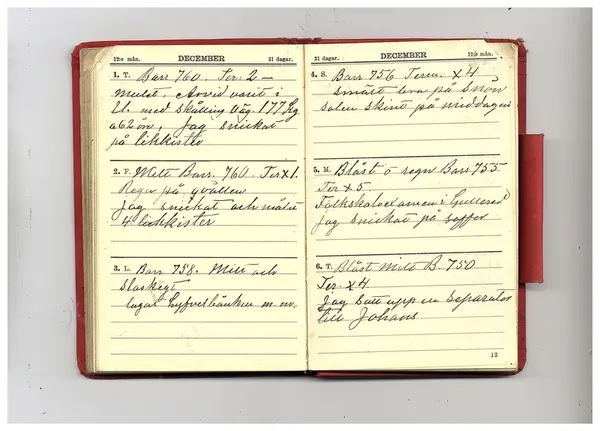 12:e mån. DECEMBER 31 dagar.
1. T. Barr 760. Ter: 2 –
mulet, Arvid varit i
med Väg. 177 kg
a 62 öre, Jag snickat
på likkister
2. F. Milt Barr. 760. Ter x 1.
Regn på qvällen
jag snickat och målat
4 likkister
3. L. Barr 758. Milt och
slaskigt
lagat hyfvelbänken m. m.
31 dagar. DECEMBER 12:e mån.
4. S. Barr 756 Term. x 4
smått bra på snön
solen skint på middagen
5. M. Blåst o regn Barr 755
Ter x 5.
Folkskolexamen i
jag snickat på soffor
6. T. Blåst Milt B. 750
Ter x 4
Jag satt upp en Separator
till Johans
12